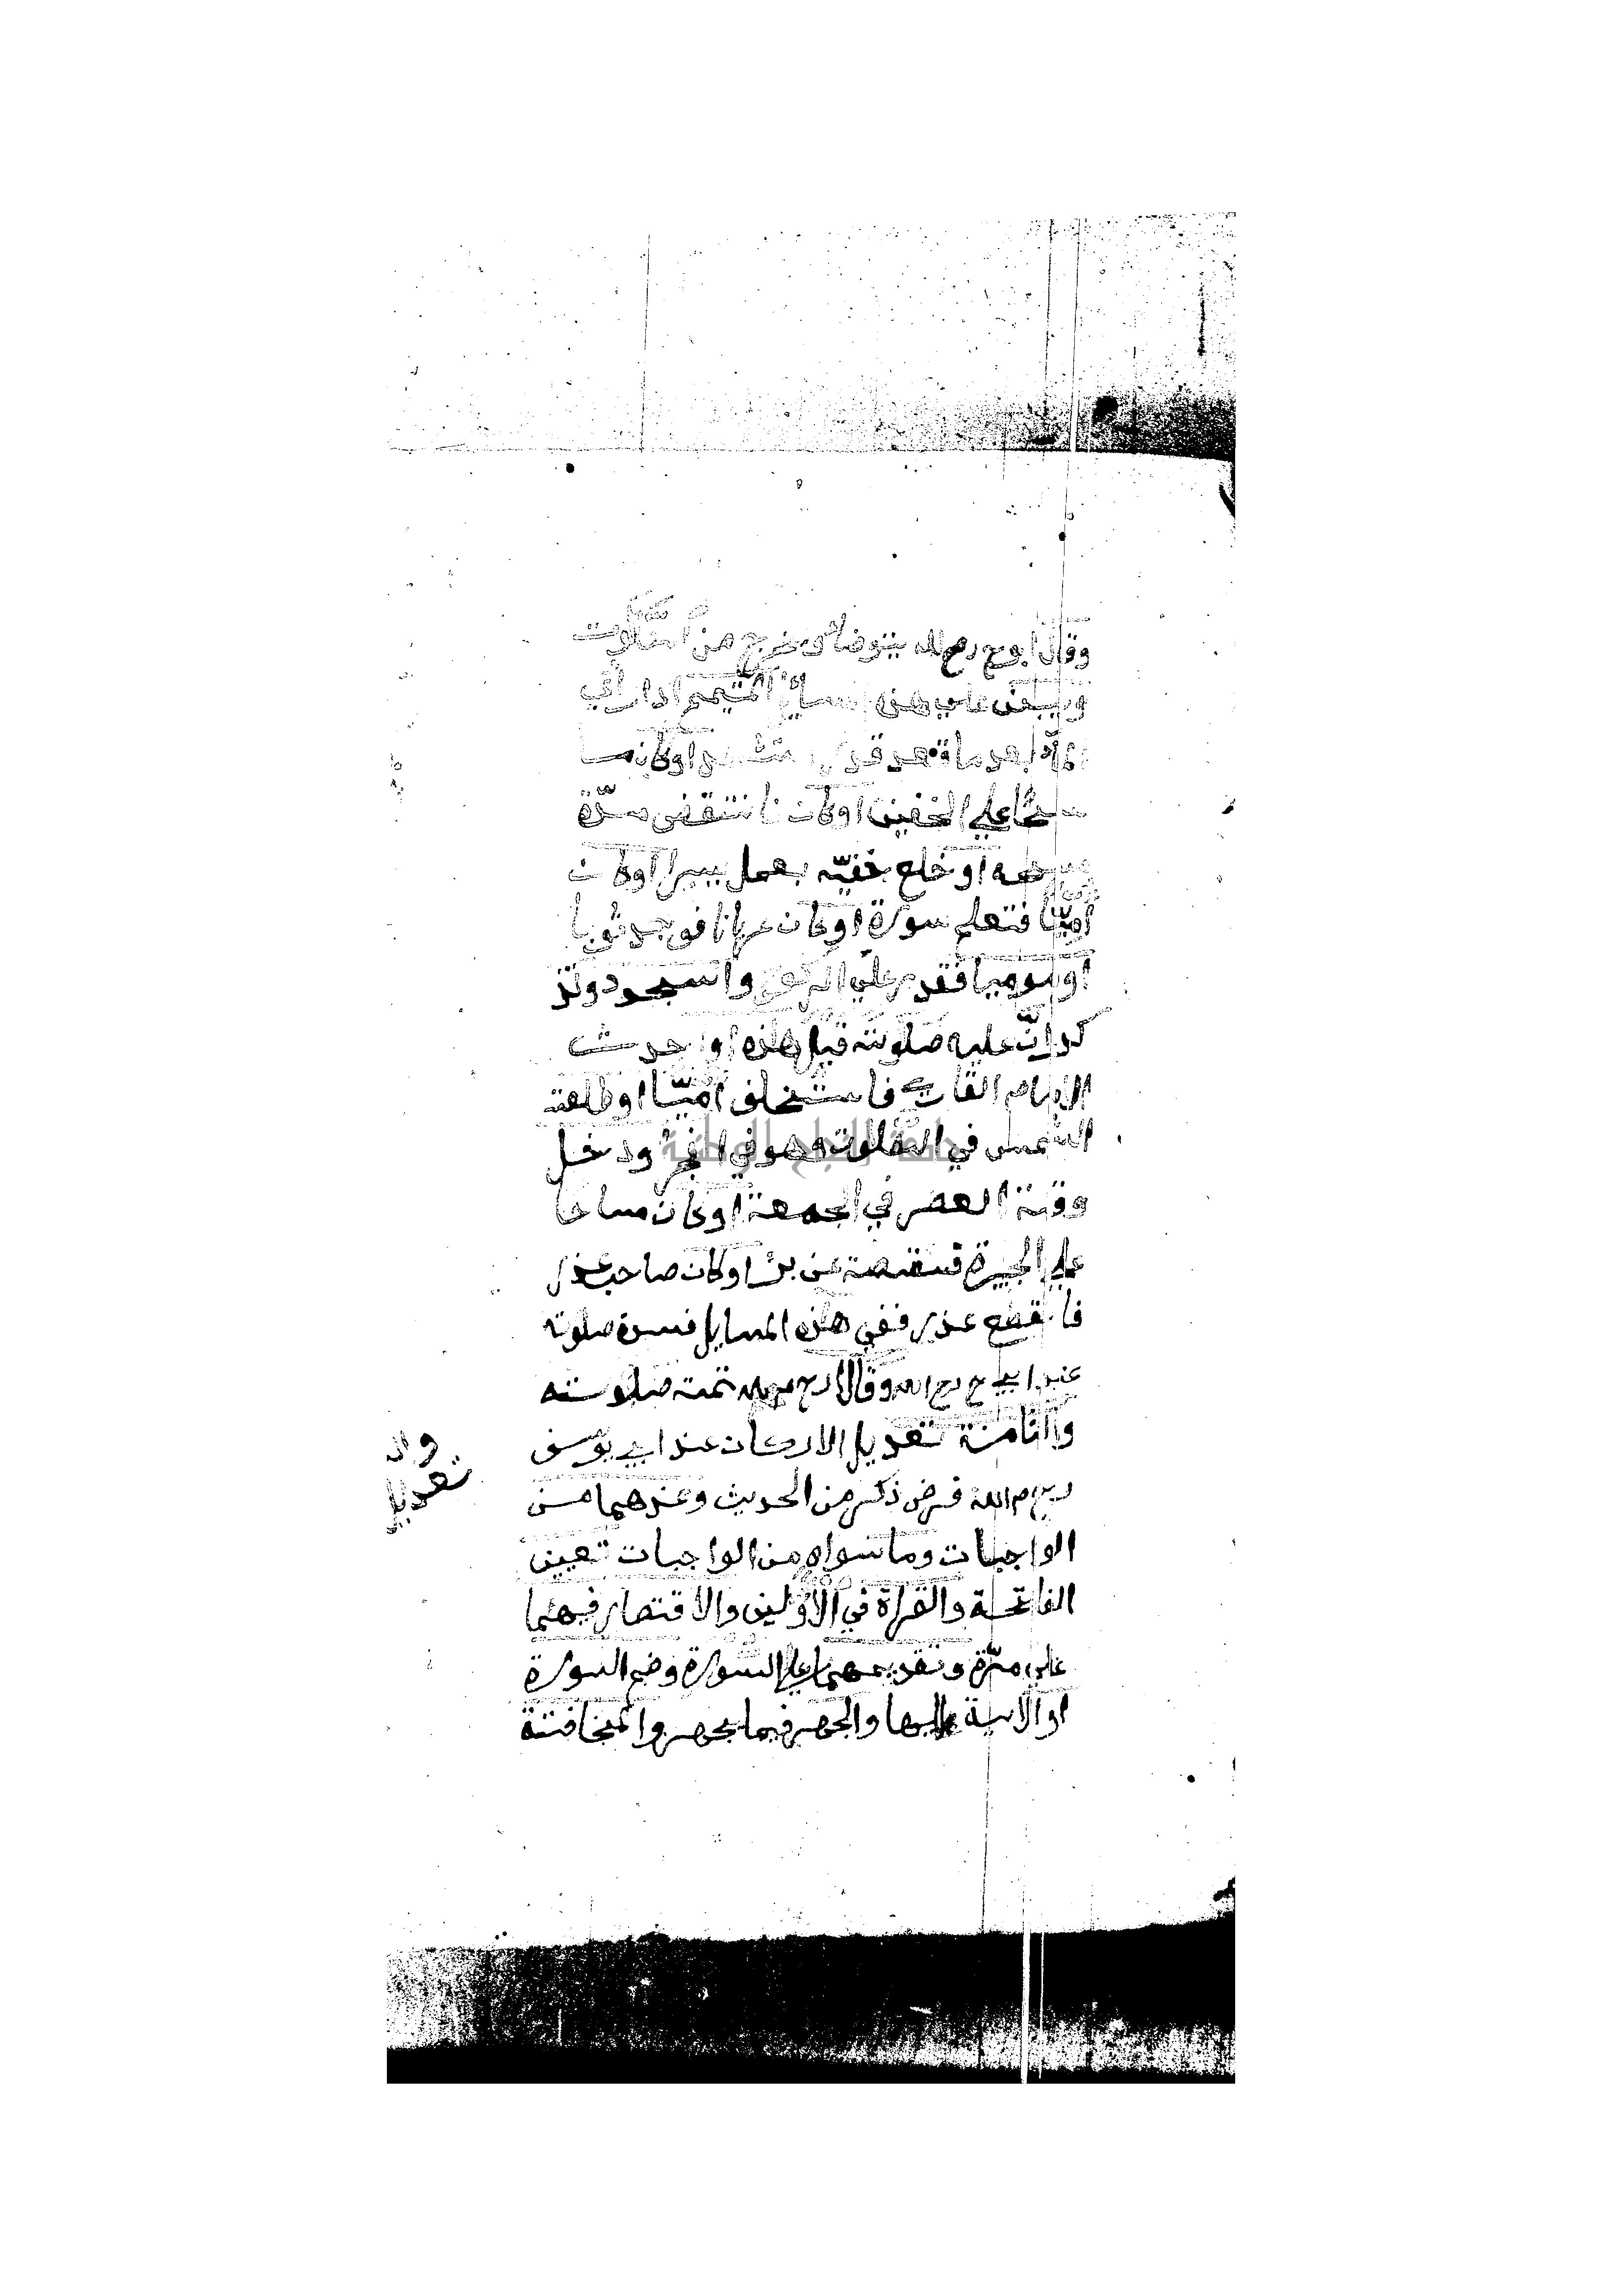 وقال ابو ح رحم الله يتوضأ و يخرج من الصلوت
ويبتني علي هذه المسايل المتيمم اذا رأي
الماء بعد ما قعد قدر التشهد او كان ما
سحًا علي الخفين او كان فانتقض مدّة
مسحه او خلع خفيّه بعمل يسير او كان
اميًّا فتعلم سورة او كان عريانا فوجد ثوبا
او موميا فقدر علي الركوع والسجود وتذ
كر انّ عليه صلوته قبل هذه او احدث
الامام القاري فاستخلف اميًّا او طلعة
الشمس في الصلوت وهو في الفجر ودخل
وقت العصر في الجمعة او كان ماسحا
علي الجبيرة فسقطة عن برئ او كان صاحب عذر
فانقطع عذره ففي هذه المسايل فسدة صلوته
عند ابي ح رح الله وقالا رحمهم الله تمت صلوته
والثامنة تعديل الاركان عند ابي يوسف
رحم الله فرض ذكره من الحديث وعندهما من
الواجبات وما سواه من الواجبات تعيين
الفاتحة والقراة في الأوليين والاقتصار فيهما
علي مرّة وتقديمهما علي السورة وضم السورة
او الاية اليها والجهر فيما يجهر والمخافتة
تعديل
جامعة النجاح الوطنية